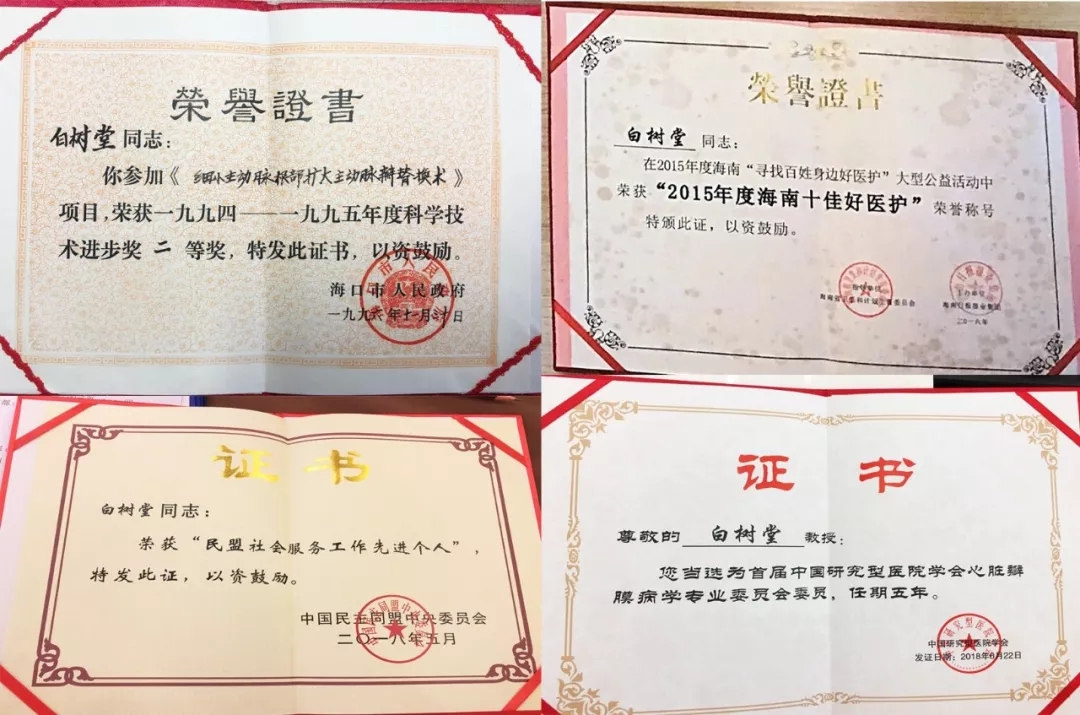 榮譽證書
白树堂同志：
你参加《细小主动脉根部扩大主动脉瓣替换术》
项目，荣获一九九四——一九九五年度科学技
术进步奖二等奖，特发此证书，以资鼓励。
海口市人民政府
榮譽證書
白树堂 同志：
在2015年度海南“寻找百姓身边好医护”大型公益活动中
荣获“2015年度海南十佳好医护”荣誉称号
特颁此证，以资鼓励。
二〇一六年
证书
白树堂同志：
荣获“民盟社会服务工作先进个人”，
特发此证，以资鼓励。
中国民主同盟中央委员会
二〇一八年五月
证书
尊敬的 白树堂 教授：
您当选为首届中国研究型医院学会心脏瓣
膜病学专业委员会委员，任期五年。
中国研究型医院学会
发证日期：2018年6月22日